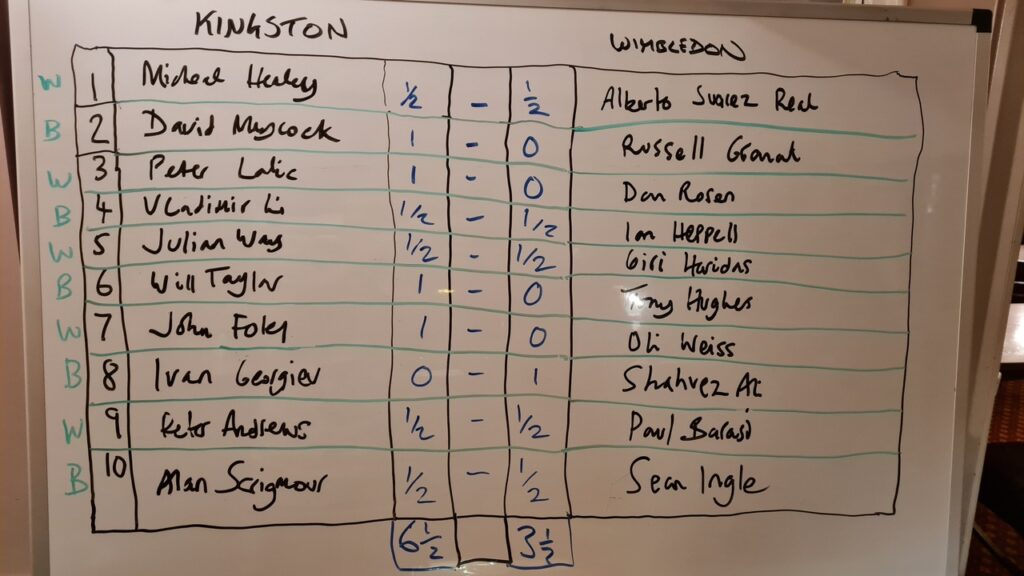 KINGSTON WIMBLEDON
W 1 Michael Healey ½ - ½ Alberto Suarez Real
B 2 David Maycock 1 - 0 Russell Granat
W 3 Peter Lalic 1 - 0 Dan Rosen
B 4 Vladimir Li 1/2 - 1/2 Ian Heppell
W 5 Julian Way 1/2 - 1/2 Giri Haridas
B 6 Will Taylor 1 - 0 Tony Hughes
W 7 John Foley 1 - 0 Oli Weiss
B 8 Ivan Georgiev 0 - 1 Shahvez Ali
W 9 Peter Andrews 1/2 - 1/2 Paul Barasi
B 10 Alan Scrimgour 1/2 - 1/2 Sean Ingle
6½ 3½